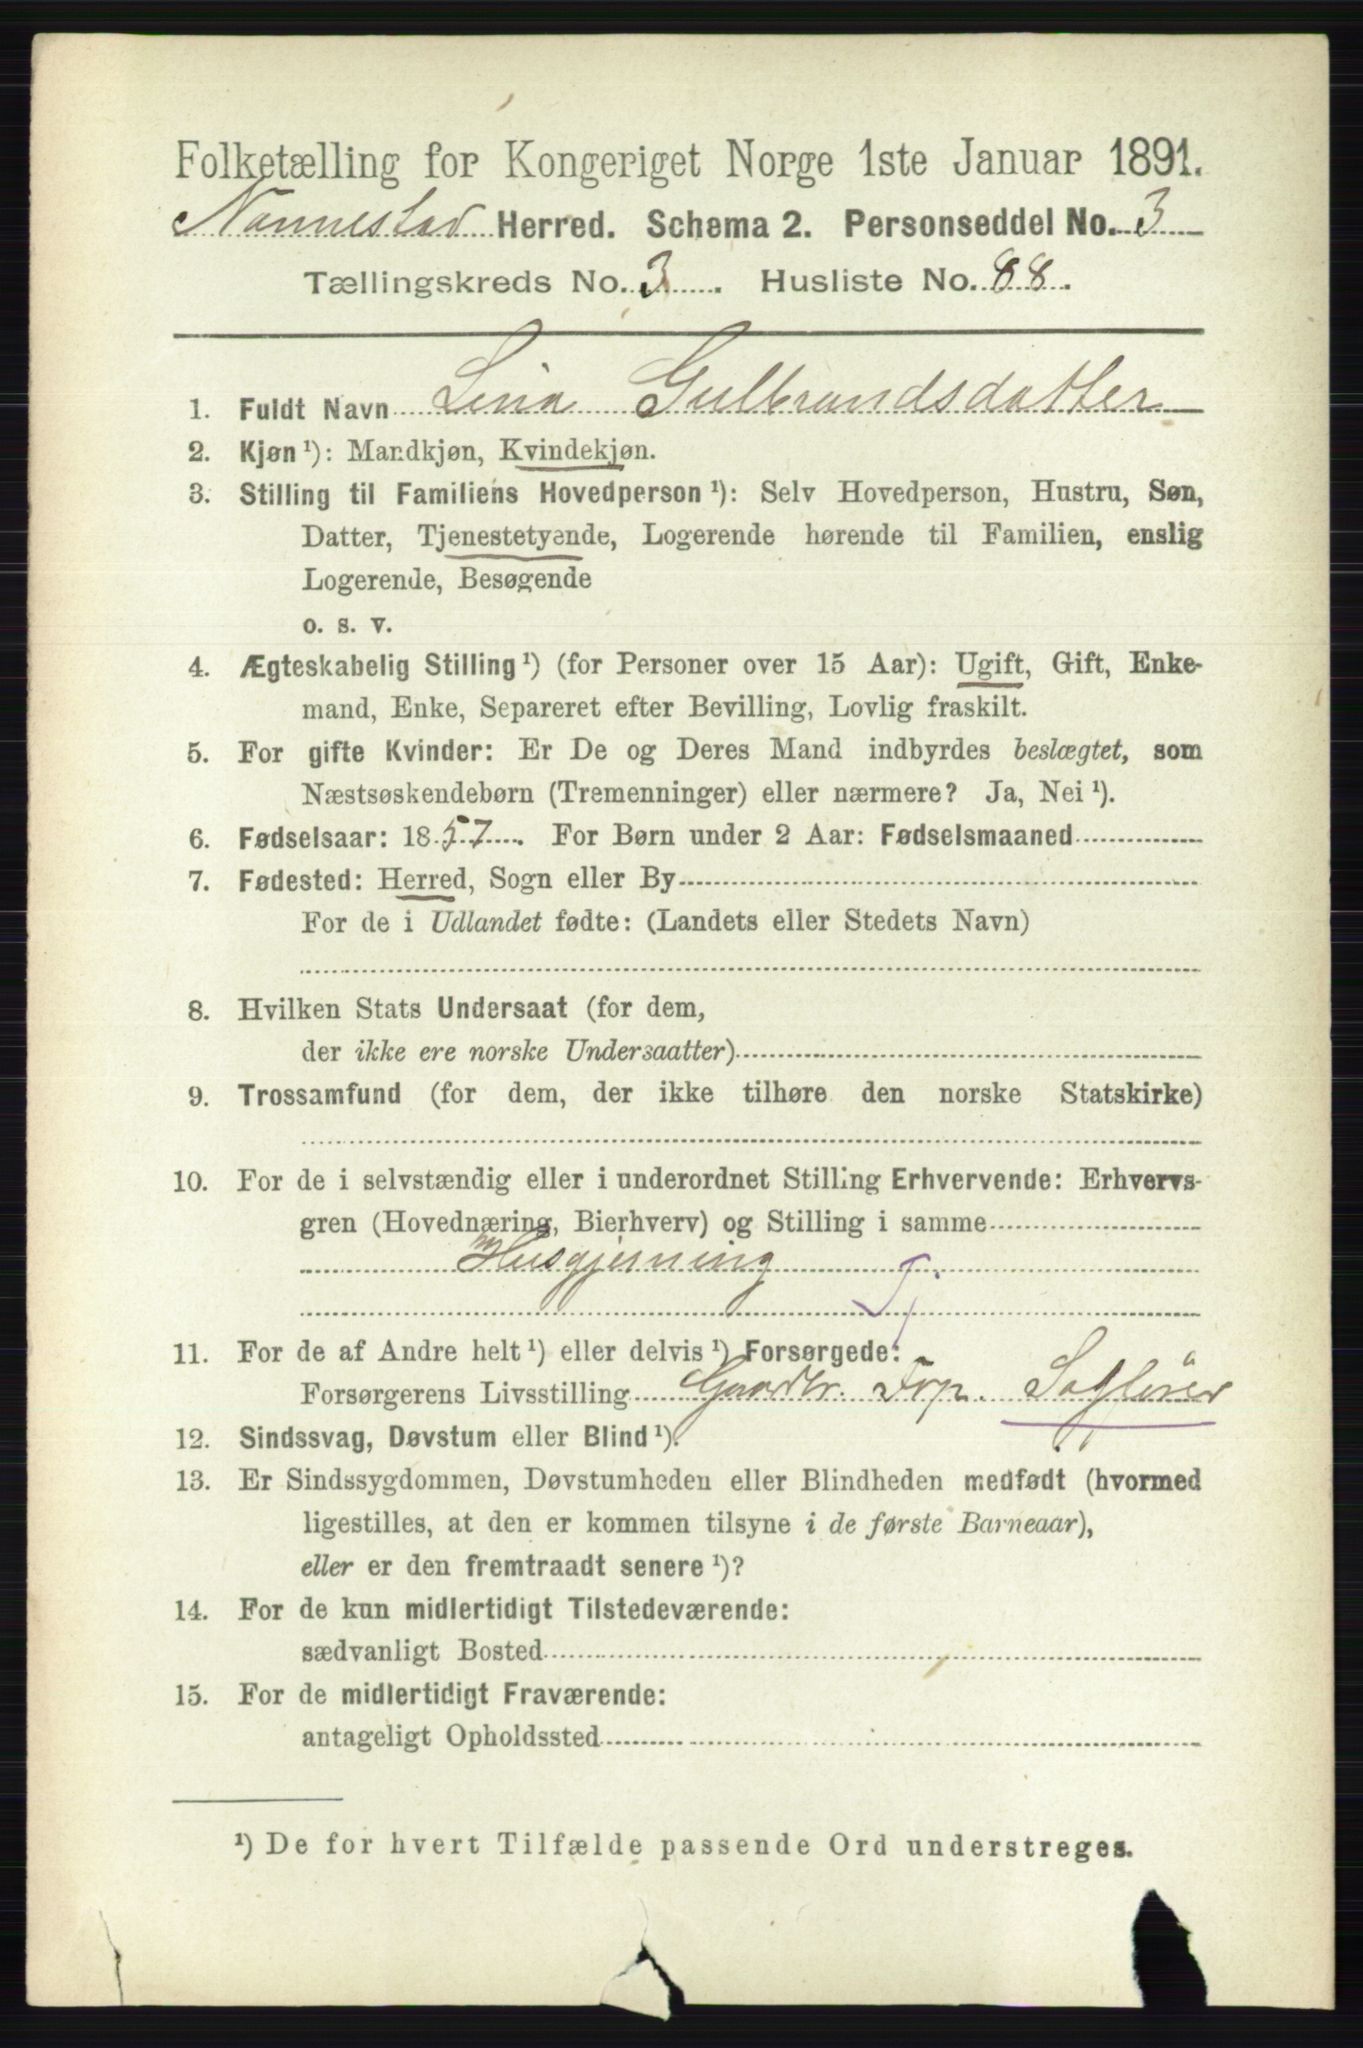 Folketælling for Kongeriget Norge 1ste Januar 1891.
Nannestad Herred. Schema 2. Personseddel No. 3
Tællingskreds No. 3. Husliste No. 88.
1. Fuldt Navn Lina Gulbrandsdatter
2. Kjøn ¹): Mandkjøn, Kvindekjøn.
3. Stilling til Familiens Hovedperson ¹): Selv Hovedperson, Hustru, Søn,
Datter, Tjenestetyende, Logerende hørende til Familien, enslig
Logerende, Besøgende
o. s. v.
4. Ægteskabelig Stilling ¹) (for Personer over 15 Aar): Ugift, Gift, Enke-
mand, Enke, Separeret efter Bevilling, Lovlig fraskilt.
5. For gifte Kvinder: Er De og Deres Mand indbyrdes beslægtet, som
Næstsøskendebørn (Tremenninger) eller nærmere? Ja, Nei ¹).
6. Fødselsaar: 1857. For Børn under 2 Aar: Fødselsmaaned
7. Fødested: Herred, Sogn eller By
For de i Udlandet fødte: (Landets eller Stedets Navn)
8. Hvilken Stats Undersaat (for dem,
der ikke ere norske Undersaatter)
9. Trossamfund (for dem, der ikke tilhøre den norske Statskirke)
10. For de i selvstændig eller i underordnet Stilling Erhvervende: Erhvervs-
gren (Hovednæring, Bierhverv) og Stilling i samme
Husgjerning Tj.
11. For de af Andre helt ¹) eller delvis ¹) Forsørgede:
Forsørgerens Livsstilling Gaardbr.
12. Sindssvag, Døvstum eller Blind ¹).
13. Er Sindssygdommen, Døvstumheden eller Blindheden medfødt (hvormed
ligestilles, at den er kommen tilsyne i de første Barneaar),
eller er den fremtraadt senere ¹)?
14. For de kun midlertidigt Tilstedeværende:
sædvanligt Bosted
15. For de midlertidigt Fraværende:
antageligt Opholdssted
¹) De for hvert Tilfælde passende Ord understreges.